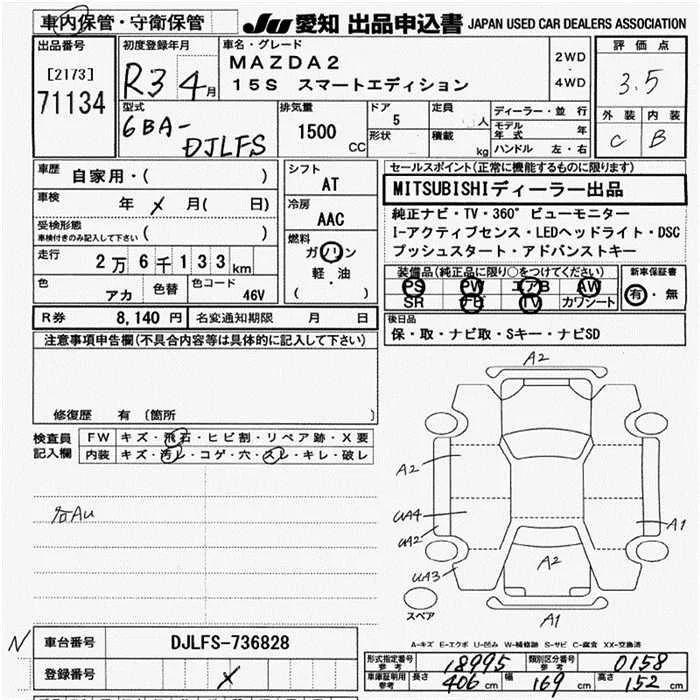 車内保管・守衛保管
JU 愛知 出品申込書 JAPAN USED CAR DEALERS ASSOCIATION
出品番号
[2173]
71134
初度登録年月
R3 4月
車名・グレード
MAZDA2
15S スマートエディション
2WD
・
4WD
評価点
3.5
外装 内装
C B
型式
6BA-
DJLFS
排気量
1500
CC
ドア
5
定員
人
形状
積載
kg
ディーラー・並行
モデル年式 年
ハンドル 左・右
車歴
自家用・( )
車検
年 メ 月( 日)
受検形態
車検付きのみ記入して下さい ( )
走行
2万6千133km
色
アカ
色替
色コード
46V
シフト
AT
冷房
AAC
燃料
ガソリン
軽・油
( )
セールスポイント(正常に機能するものに限ります)
MITSUBISHIディーラー出品
純正ナビ・TV・360°ビューモニター
I-アクティブセンス・LEDヘッドライト・DSC
プッシュスタート・アドバンストキー
装備品(純正品に限り○をつけてください)
PS PW エアB AW
SR ナビ TV カワシート
新車保証書
有・無
R券 8,140円 名変通知期限 月 日
後日品
保・取・ナビ取・Sキー・ナビSD
注意事項申告欄(不具合内容等は具体的に記入して下さい)
修復歴 有 〔箇所 〕
検査員
記入欄
FW キズ・飛石・ヒビ割・リペア跡・X要
内装 キズ・汚レ・コゲ・穴・スレ・キレ・破レ
A2
A2
UA4
UA2
UA3
A1
A2
A1
スペア
車台番号 DJLFS-736828
登録番号
A-キズ E-エクボ U-凹み W-補修跡 S-サビ C-腐食 XX-交換済
形式指定番号
参考
18995
類別区分番号
参考
0158
車庫証明用
参考
長さ 406 cm 幅 169 cm 高さ 152 cm